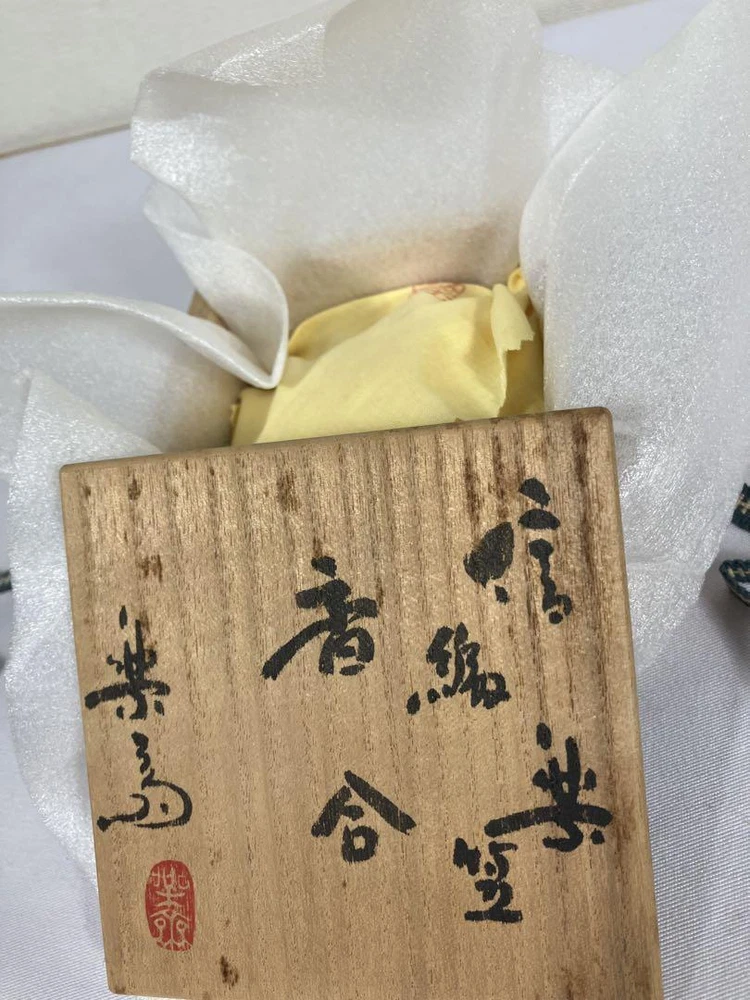 信楽
編笠
香合
楽斎